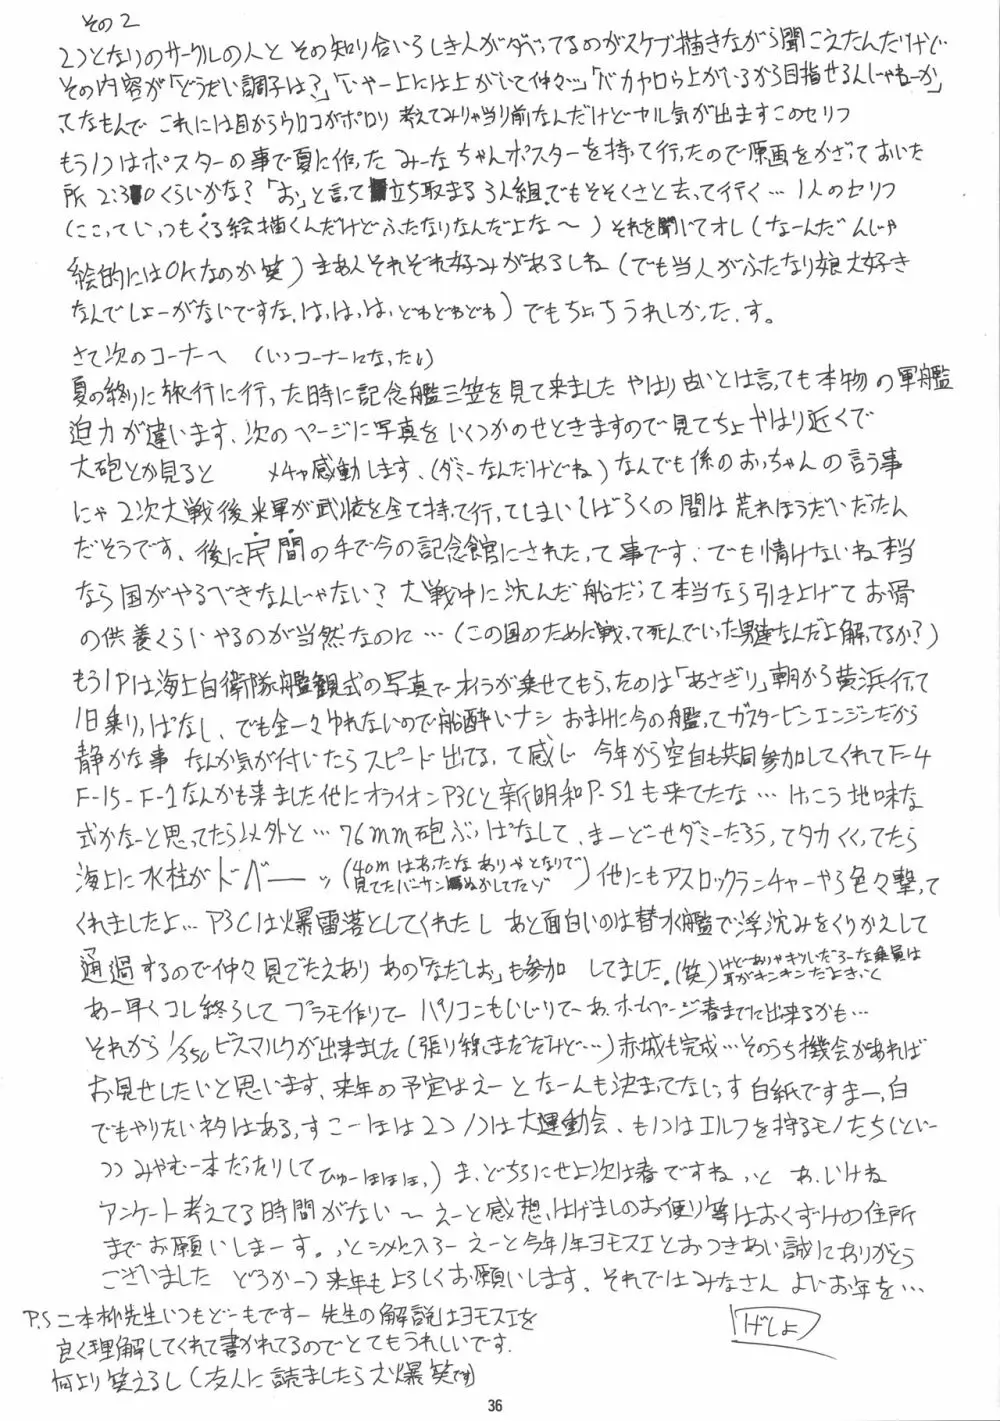 その2
2つとなりのサークルの人とその知り合いらしき人がダベってるのがスケブ描きながら聞こえたんだけど
その内容が「どうだい調子は?」「いやー上には上がいて仲々…」「バカヤロウ上がいるから目指せるんじゃねーか」
てなもんで これには目からウロコがポロリ 考えてみりゃ当り前なんだけどヤル気が出ますこのセリフ
もう1つはポスターの事で夏に作った みーなちゃんポスターを持って行ったので原画をかざっておいた
所 2:30くらいかな?「お」と言って立ち取まる3人組でもそそくさと去って行く… 1人のセリフ
(ここっていっつもくる絵描くんだけどふたなりなんだよな〜) それを聞いてオレ (なーんだんじゃ
絵的にはOKなのか笑) まあんそれぞれ好みがあるしね (でも当人がふたなり娘大好き
なんでしょーがないですな、はっはっは、どわどわどわ) でもちょっちうれしかったっす。
さて次のコーナーへ (いつコーナーになったい)
夏の終りに旅行に行った時に記念艦三笠を見て来ました やはり古いとは言っても本物の軍艦
迫力が違います、次のページに写真をいくつかのせときますので見てちょ やはり近くで
大砲とか見ると メチャ感動します、(ダミーなんだけどね) なんでも係のおっちゃんの言う事
にゃ2次大戦後米軍が武装を全て持って行ってしまいしばらくの間は荒れほうだいだったん
だそうです、後に民間の手で今の記念館にされたって事です、でも情けないね本当
なら国がやるべきなんじゃない? 大戦中に沈んだ船だって本当なら引き上げてお骨
の供養くらいやるのが当然なのに… (この国のために戦って死んでいった男達なんだよ解ってるか?)
もう1Pは海上自衛隊艦観式の写真でオイラが乗せてもらったのは「あさぎり」朝から横浜行って
1日乗りっぱなし、でも全々ゆれないので船酔いナシ おまけに今の艦ってガスタービンエンジンだから
静かな事 なんか気が付いたらスピード出てるって感じ 今年から空自も共同参加してくれてF-4
F-15-F-1なんかも来ました他にオライオンP3Cと新明和P-S1も来てたな… けっこう地味な
式かなーと思ってたら以外と… 76mm砲ぶっぱなして、まーどーせダミーだろうってタカくくってたら
海上に水柱がドバーーッ (40mはあったなありゃとなりで
見てたバーサンぬかしてたゾ) 他にもアスロックランチャーやら色々撃って
くれましたよ… P3Cは爆雷落としてくれたし あと面白いのは潜水艦で浮沈みをくりかえして
通過するので仲々見ごたえあり あの「なだしお」も参加してました。(笑) (けどありゃぎりいたろーな乗員は
耳がキンキンだよきっと
あー早くコレ終らして プラモ作りてー パソコンもいじりてー あ、ホームページ春までに出来るかも…
それから1/350ビスマルクが出来ました (張り線まだだけど…) 赤城も完成…そのうち機会があれば
お見せしたいと思います、来年の予定はえーと なーんも決まってなしっす 白紙ですまーっ白
でもやりたいネタはあるっすこーほは2つ 1つは大運動会、も1つはエルフを狩るモノたち (といー
つつみやむー本だったりして ひゅーほほほっ) ま、どちらにせよ次は春ですねっと あ、いけね
アンケート考えてる時間がない〜 えーと感想、はげましのお便り等はおくずけの住所
までお願いしまーす。っとシメに入ろー えーと今年1年ヨモスエとおつきあい誠にありがとう
ございました どうか一つ来年もよろしくお願いします、それではみなさん よいお年を…
げしょ
P.S 二本柳先生いつもどーもですー 先生の解説はヨモスエを
良く理解してくれて書かれてるのでとてもうれしいです。
何より笑えるし (友人に読ましたら大爆笑です)
36